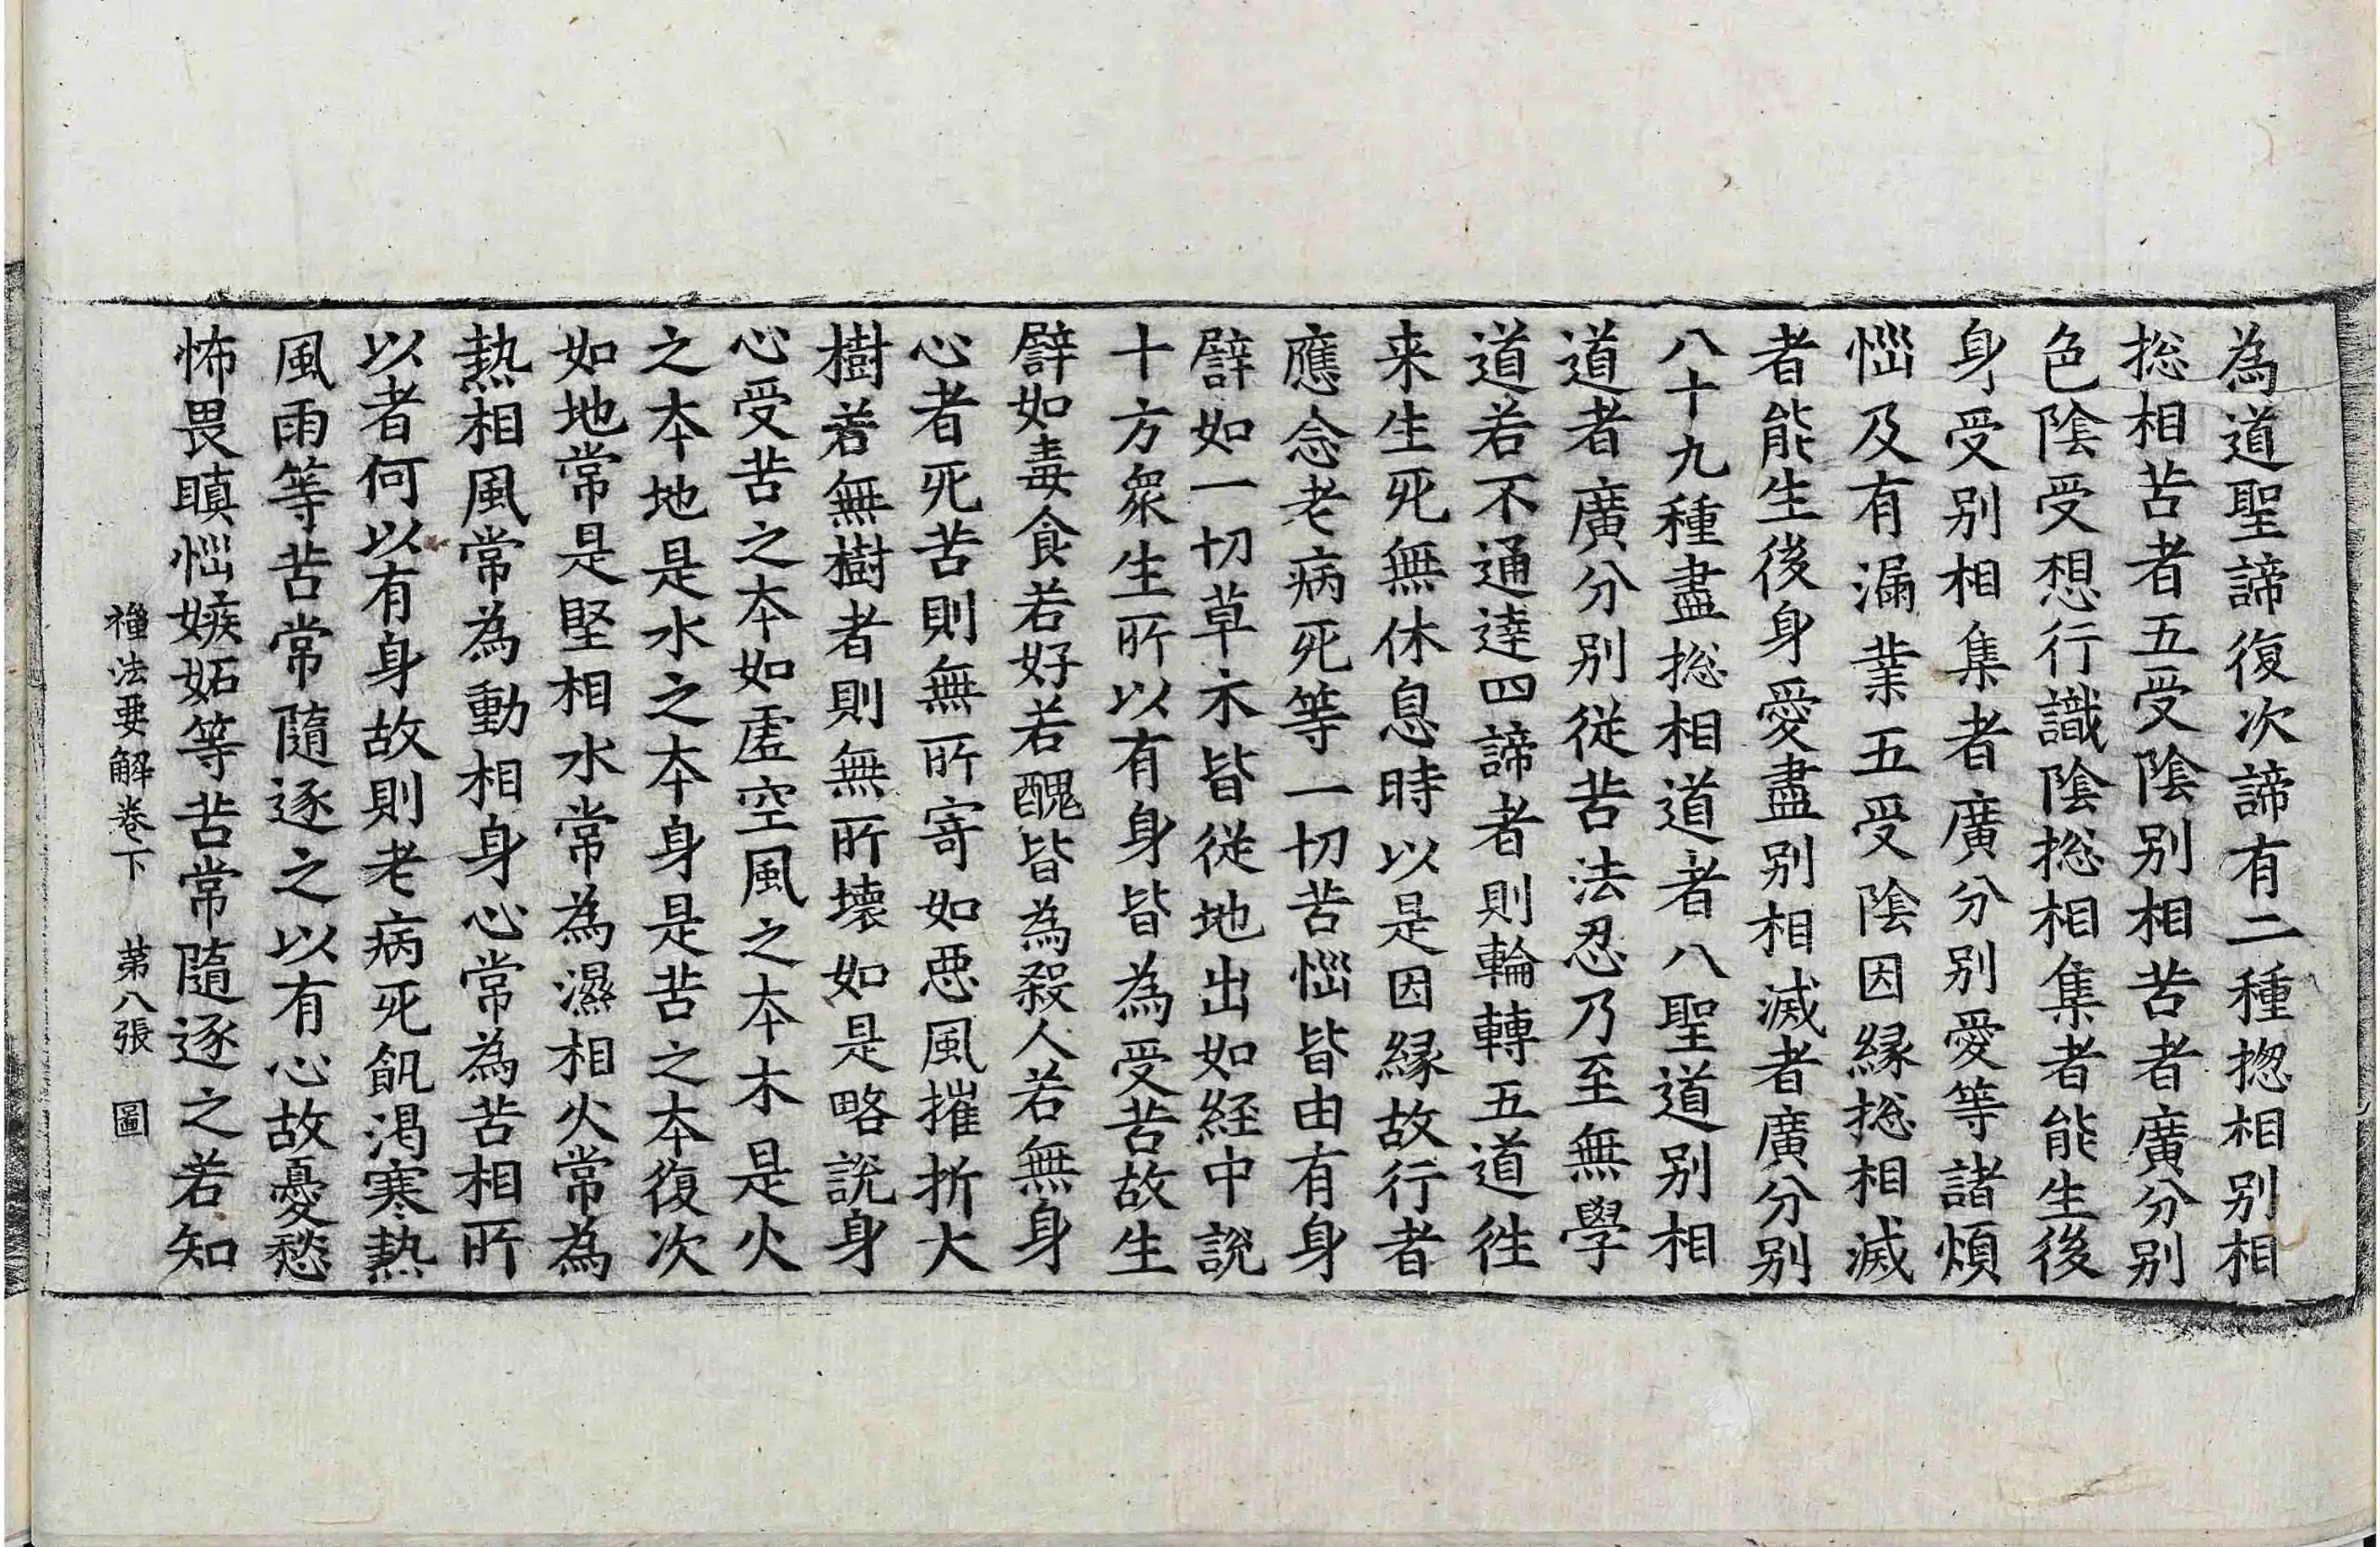 為道聖諦復次諦有二種揔相别相
捴相苦者五受隂别相苦者廣分别
色隂受想行識隂捴相集者能生後
身受别相集者廣分别愛等諸煩
惱及有漏業五受隂因縁捴相滅
者能生後身愛盡别相滅者廣分别
八十九種盡捴相道者八聖道别相
道者廣分别従苦法忍乃至無學
道若不通達四諦者則輪轉五道徃
来生死無休息時以是因縁故行者
應念老病死等一切苦惱皆由有身
譬如一切草木皆從地出如経中説
十方衆生所以有身皆為受苦故生
譬如毒食若好若醜皆為殺人若無身
心者死苦則無所寄如惡風摧折大
樹若無樹者則無所壞如是略説身
心受苦之本如虛空風之本木是火
之本地是水之本身是苦之本復次
如地常是堅相水常為濕相火常為
熱相風常為動相身心常為苦相所
以者何以有身故則老病死飢渴寒熱
風雨等苦常隨逐之以有心故憂愁
怖畏瞋惱嫉妬等苦常隨逐之若知
禪法要解卷下 第八張 圖